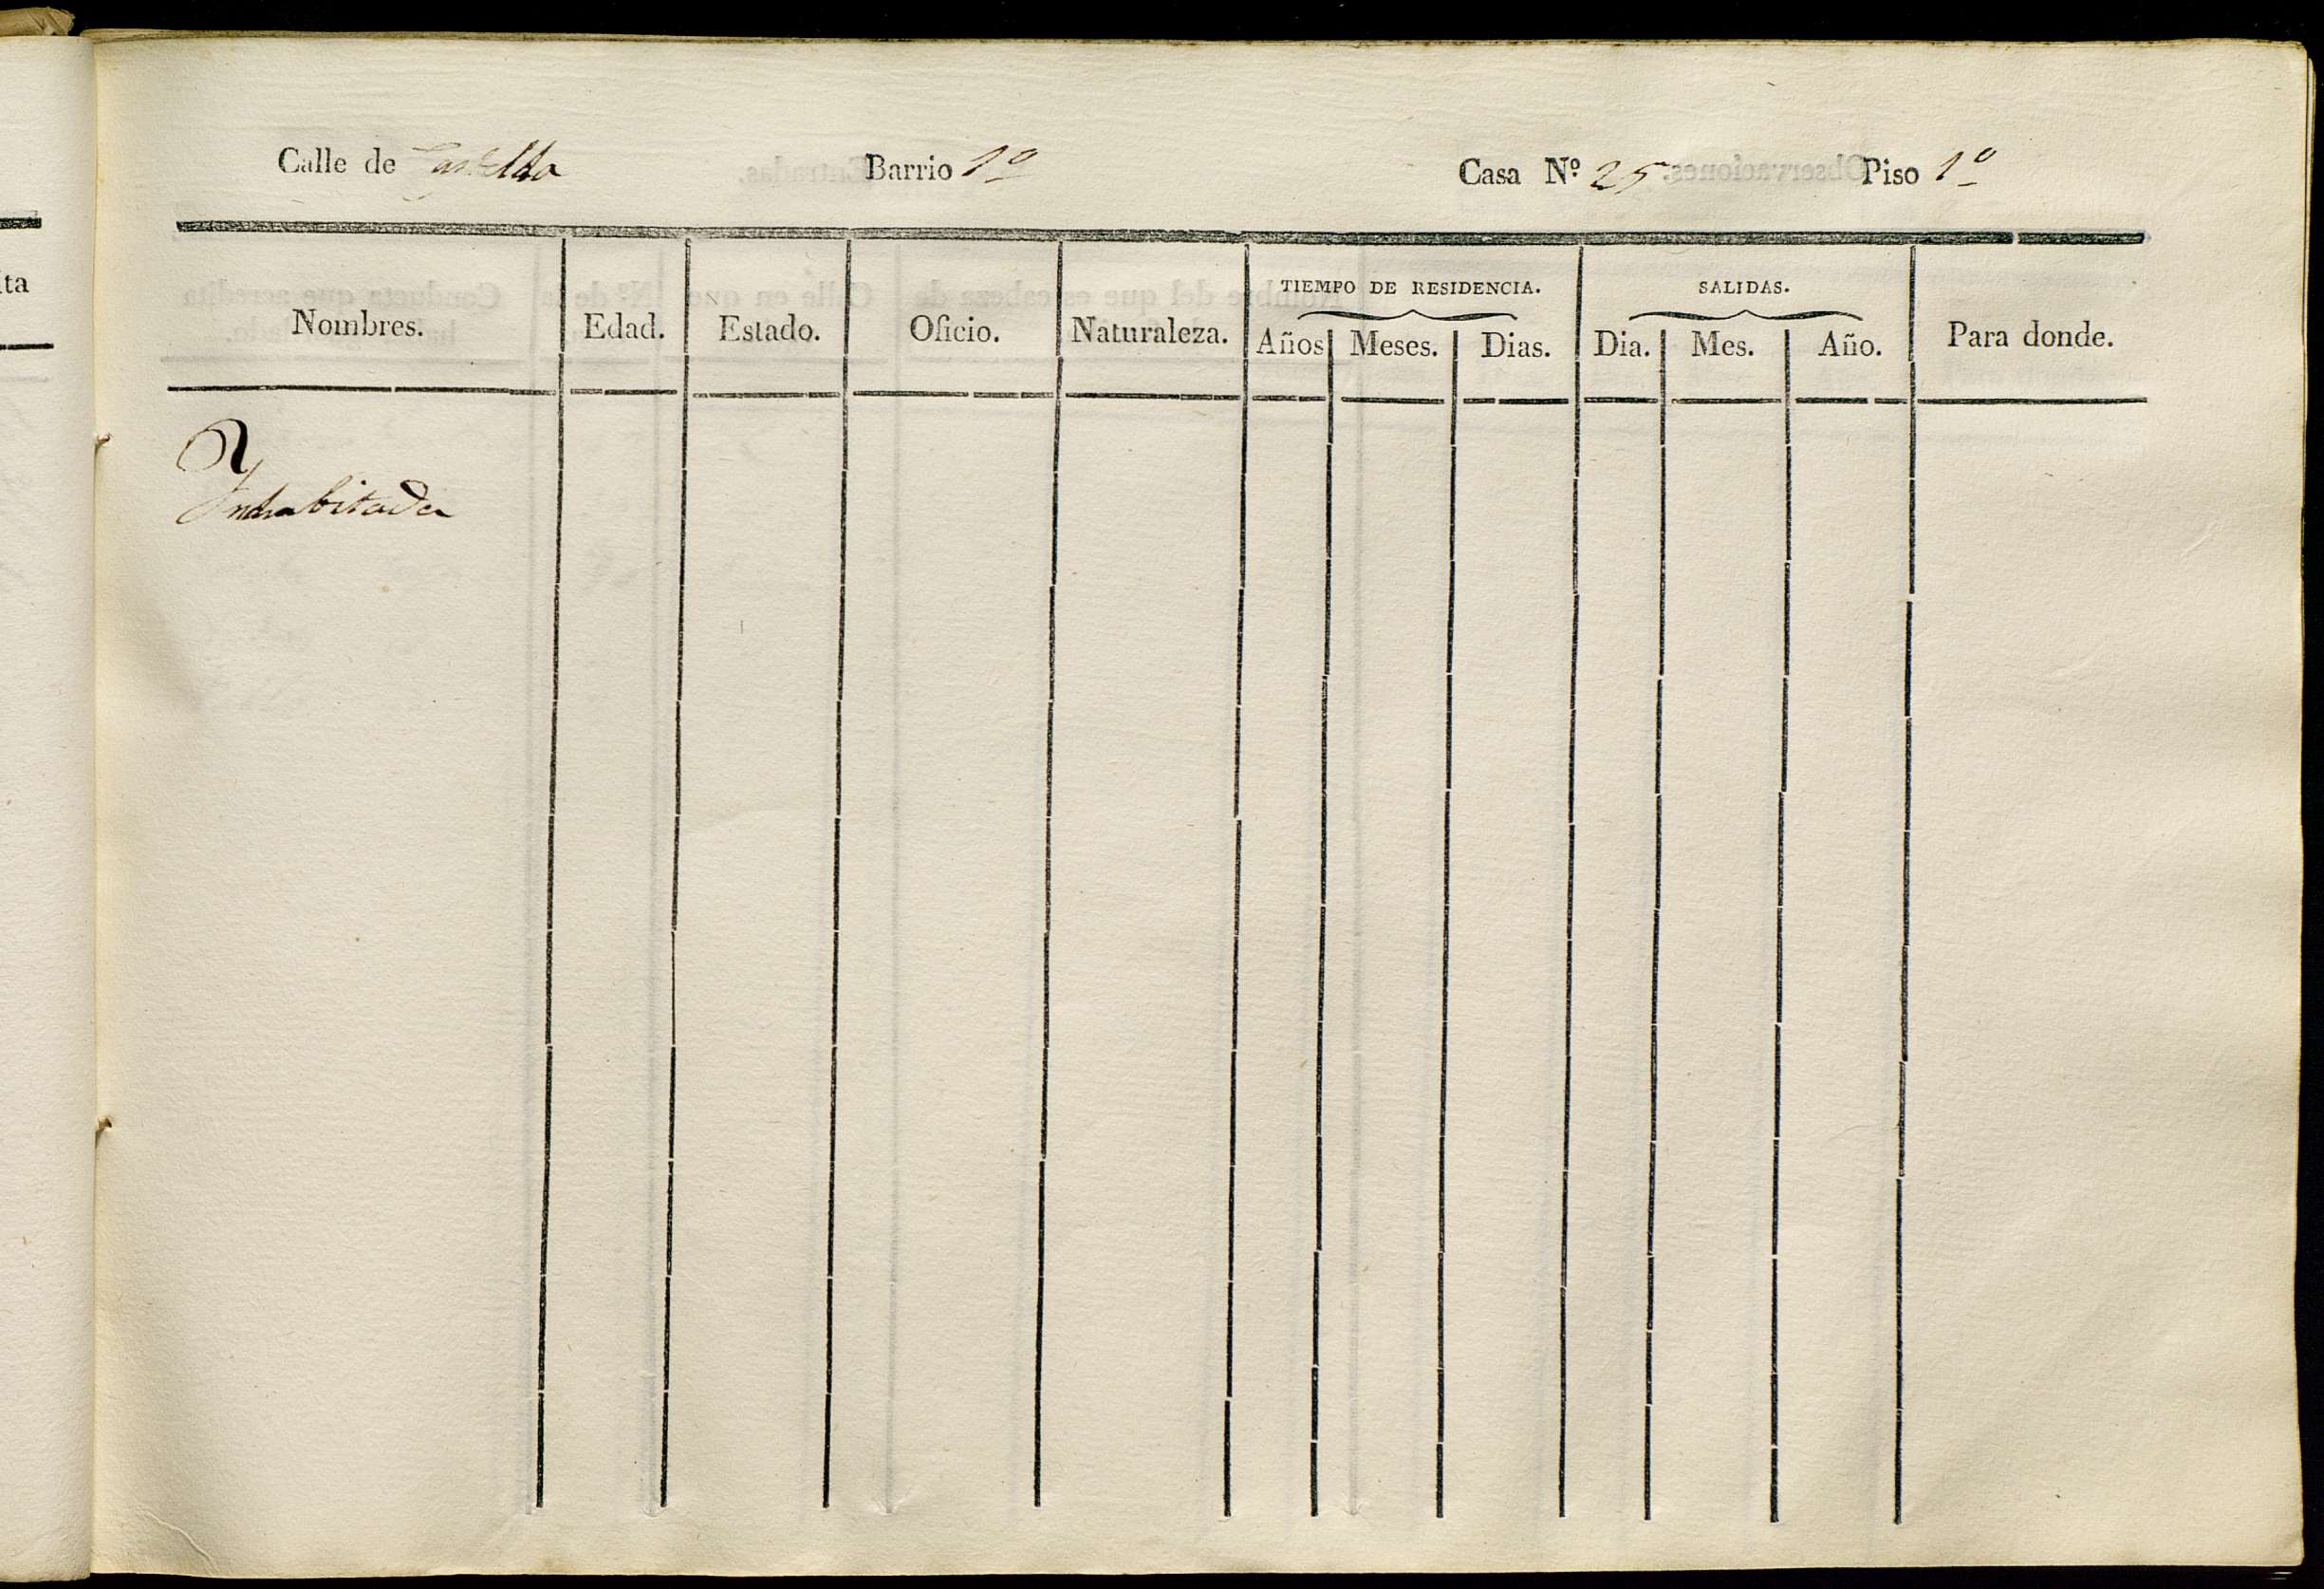 Calle de Barrio 1º Casa Nº 25 Piso 1º
ta
Nombres. Edad. Estado. Oficio. Naturaleza. TIEMPO DE RESIDENCIA. SALIDAS. Para donde.
Años Meses. Dias. Dia. Mes. Año.
Inhabitada